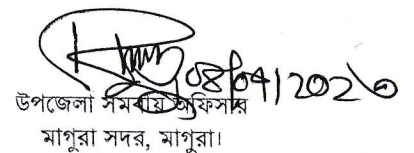 08/04/2026
উপজেলা সমবায় অফিসার
মাগুরা সদর, মাগুরা।